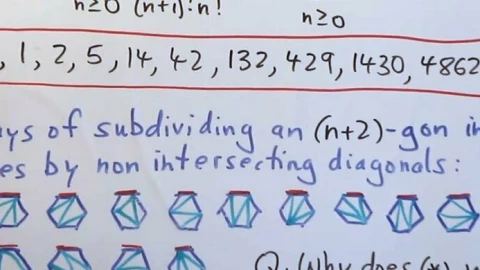 n≥0 (n+1)! n!
n≥0
, 1, 2, 5, 14, 42, 132, 429, 1430, 4862
ys of subdividing an (n+2)-gon in
es by non intersecting diagonals:
Q. Why does (*)